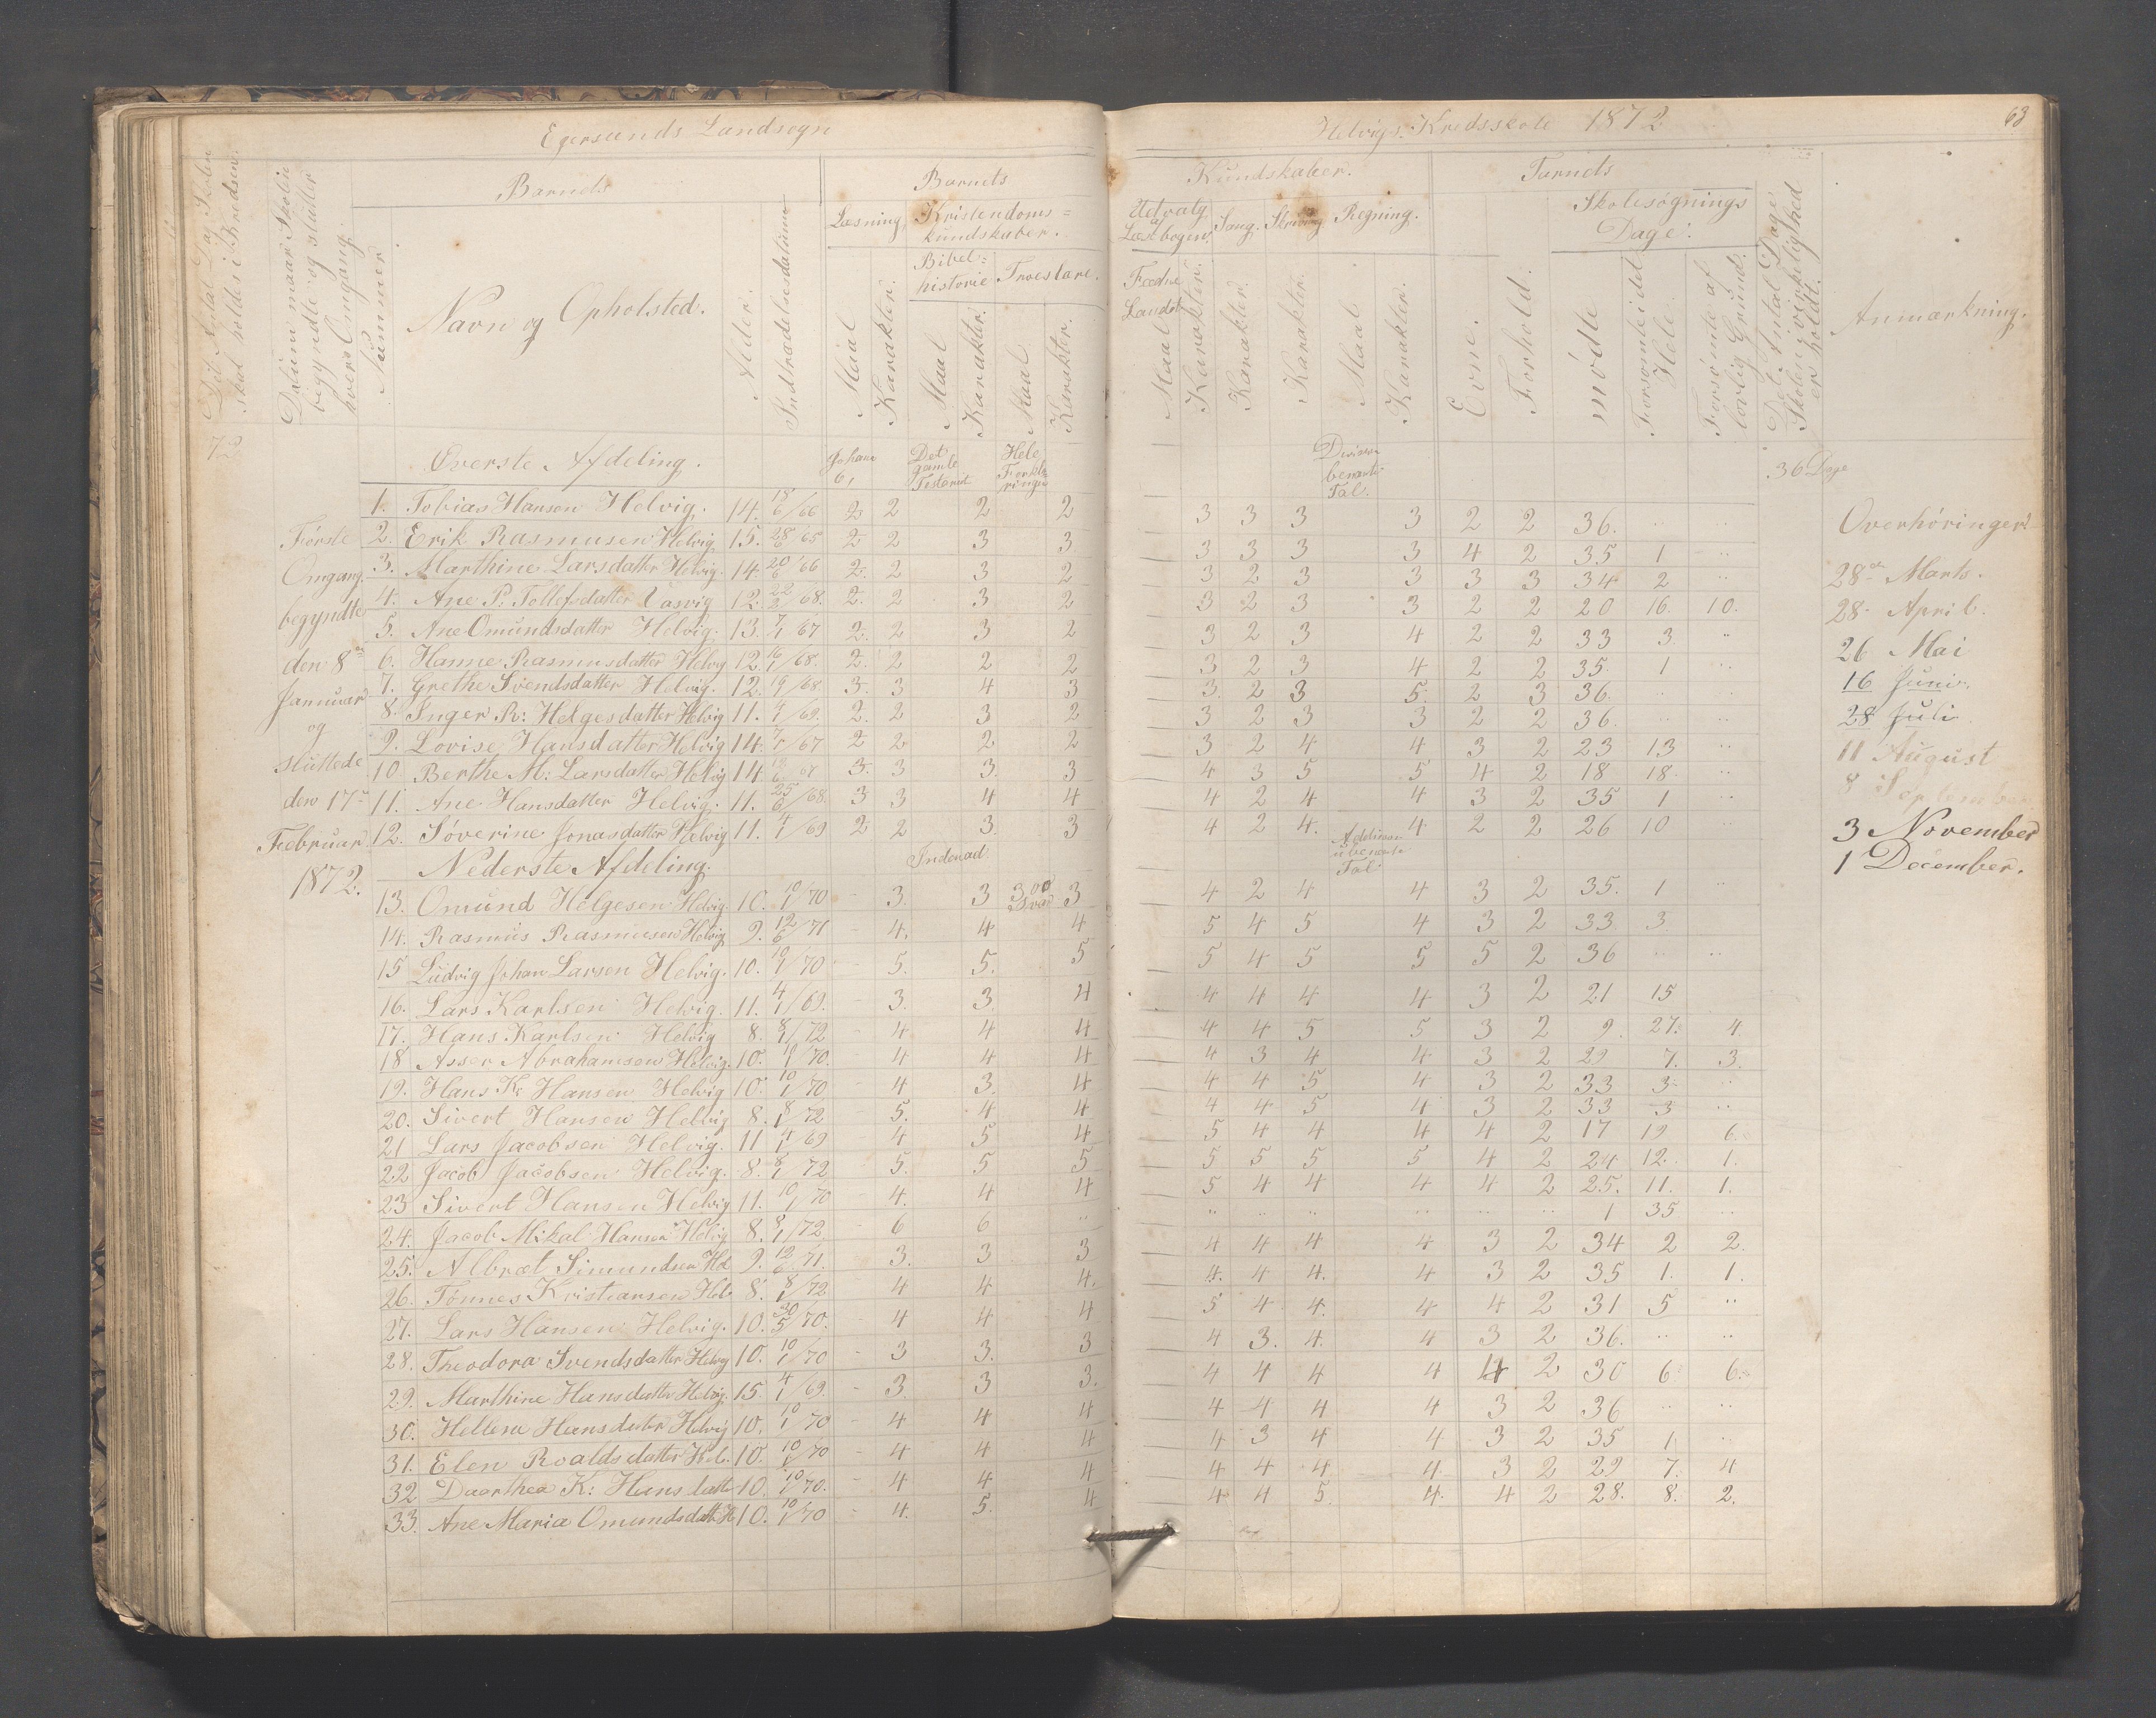 Egersunds Landsogn
Helvigs Kredsskole 1872
63
Det Antal Dage Skolen skal holdes i Kredsen.
Datum naar Skolen begyndte og slutter hvers Omgang.
Nummer
Barnets
Navn og Opholsted.
Alder.
Indtrædelsesdatum
Barnets
Læsning,
Maal
Karakter.
Kristendoms=
kundskaber.
Bibel=
historie
Maal
Karakter.
Troeslære.
Maal
Karakter.
Kundskaber.
Udvalg
af
Læsebogen.
Maal
Karakter.
Sang.
Karakter.
Skrivning
Karakter.
Regning.
Maal
Karakter.
Evne.
Forhold.
Skolesøgnings
Dage.
mødte
Forsømte i det Hele.
Forsømte af lovlig Grund.
Det Antal Dage Skolen i virkelighed er holdt.
Anmærkning.
72
Øverste Afdeling.
Det gamle Testament
Hele
36 Dage
1. Tobias Hansen Helvig. 14. 18/6/66 2 2 2 2 3 3 3 3 2 2 36.
2. Erik Rasmusen Helvig 15. 28/6/65 2 2 3 3 3 3 3 3 4 2 35 1
3. Marthine Larsdatter Helvig. 14. 20/6/66 2. 2 3 2 3 2 3 3 3 3 34 2
4. Ane P: Tollefsdatter 12. 22/2/68. 2. 2 3 2 3 2 3 3 2 2 20 16. 10.
5. Ane Omundsdatter Helvig. 13. 7/1/67 2. 2 3 2 3 2 3 4 2 2 33 3.
6. Hanne Rasmusdatter Helvig 12. 16/1/68. 2. 2 2 2 3 2 3 4 2 2 35. 1
7. Grethe Svendsdatter Helvig. 12. 3. 3 4 3 3. 2 3 5. 2 3 36.
8. Inger R: Helgesdatter Helvig 11. 4/1/69. 2. 2 3 2 3 2 3 3 2 2 36.
9. Lovise Hansdatter Helvig 14. 7/1/67 2 2 2 2 3 2 4 4 3 2 23 13
10 Berthe M: Larsdatter Helvig 14 3. 3 3. 3 4 3 5 5 4 2 18 18.
11. Ane Hansdatter Helvig. 11. 25/6/68. 3 3 4 4 4 2 4 4 3 2 35 1
12. Søverine Jonasdatter Helvig 11. 4/1/69 2 2 3. 3 4 2 4. 4 2 2 26 10
Første
Omgang
begyndte
den 8de
Januar
og
sluttede
den 17de
Februar
1872.
Nederste Afdeling.
Indenad
Tal
13. Omund Helgesen Helvig 10. 10/1/70 3. 3 3 4 2 4 4 3 2 35. 1
14. Rasmus Rasmusen Helvig 9. 12/6/71 4. 4 4 5 4 5 4 3 2 33 3
15 Ludvig Johan Larsen Helvig. 10. 10/1/70 5. 5. 5 5 4 5 5 5 2 36
16. Lars Karlsen Helvig. 11. 4/1/69. 3. 3. 4 4 4 4 4 3 2 21 15
17. Hans Karlsen Helvig 8. 8/1/72 4 4 4 4 4 5 5 3 2 9. 27. 4
18 Asser Abrahamsen Helvig. 10. 10/1/70. 4 4 4 4 3 4 4 3 2 29 7. 3.
19. Hans K: Hansen Helvig 10. 10/1/70 4 3. 4 4 4 5 4 3 2 33 3
20. Sivert Hansen Helvig 8. 8/1/72 5. 4 4 4 4 5 4 3 2 33 3
21 Lars Jacobsen Helvig. 11 4/1/69 4 5 4 5 4 4 4 4 2 17 19 6.
22 Jacob Jacobsen Helvig. 8. 8/1/72 5. 5 5 5 5 5 5 4 2 24 12. 1.
23 Sivert Hansen Helvig 11. 10/1/70 4. 4 4 5 4 4 4 4 2 25. 11. 1.
24. Jacob Mikal Hansen Helvig 8. 8/1/72 6 6 1 35
25. Albræt Simundsen Hel 9. 12/6/71. 3. 3 3 4 4 4 4 3 2 34 2 2.
26. Tønnes Kristiansen Helv 8. 8/1/72 4 4 4. 4. 4 4. 4 3 2 35 1. 1.
27. Lars Hansen Helvig. 10. 30/5/70. 4 4 4 5 4 4. 4 4 2 31 5
28. Theodora Svendsdatter Helvig 10. 10/1/70 3 3. 3 4 3. 4. 4 3 2 36.
29. Marthine Hansdatter Helvig. 15. 4/1/69. 3. 3 3. 4 4 4 4 4 2 30 6 6.
30. Hellene Hansdatter Helvig 10. 10/1/70 4 4 4 4 4 4 4 3 2 36
31. Elen Roaldsdatter Hel. 10. 10/1/70 4 4 4 4 3 4 4 3 2 35 1
32. Daarthea K: Hansdatte 10. 10/1/70. 4 4 4 4 4 4 4 3 2 29 7. 4
33. Ane Maria Omundsdatt H 10. 10/1/70 4. 5. 4 4 4 5. 4. 4 2 28. 8. 2.
Overhøringer
28de Marts.
28. April.
26 Mai
16 Juni.
28 Juli
11 August
8 September
3 November
1 December.